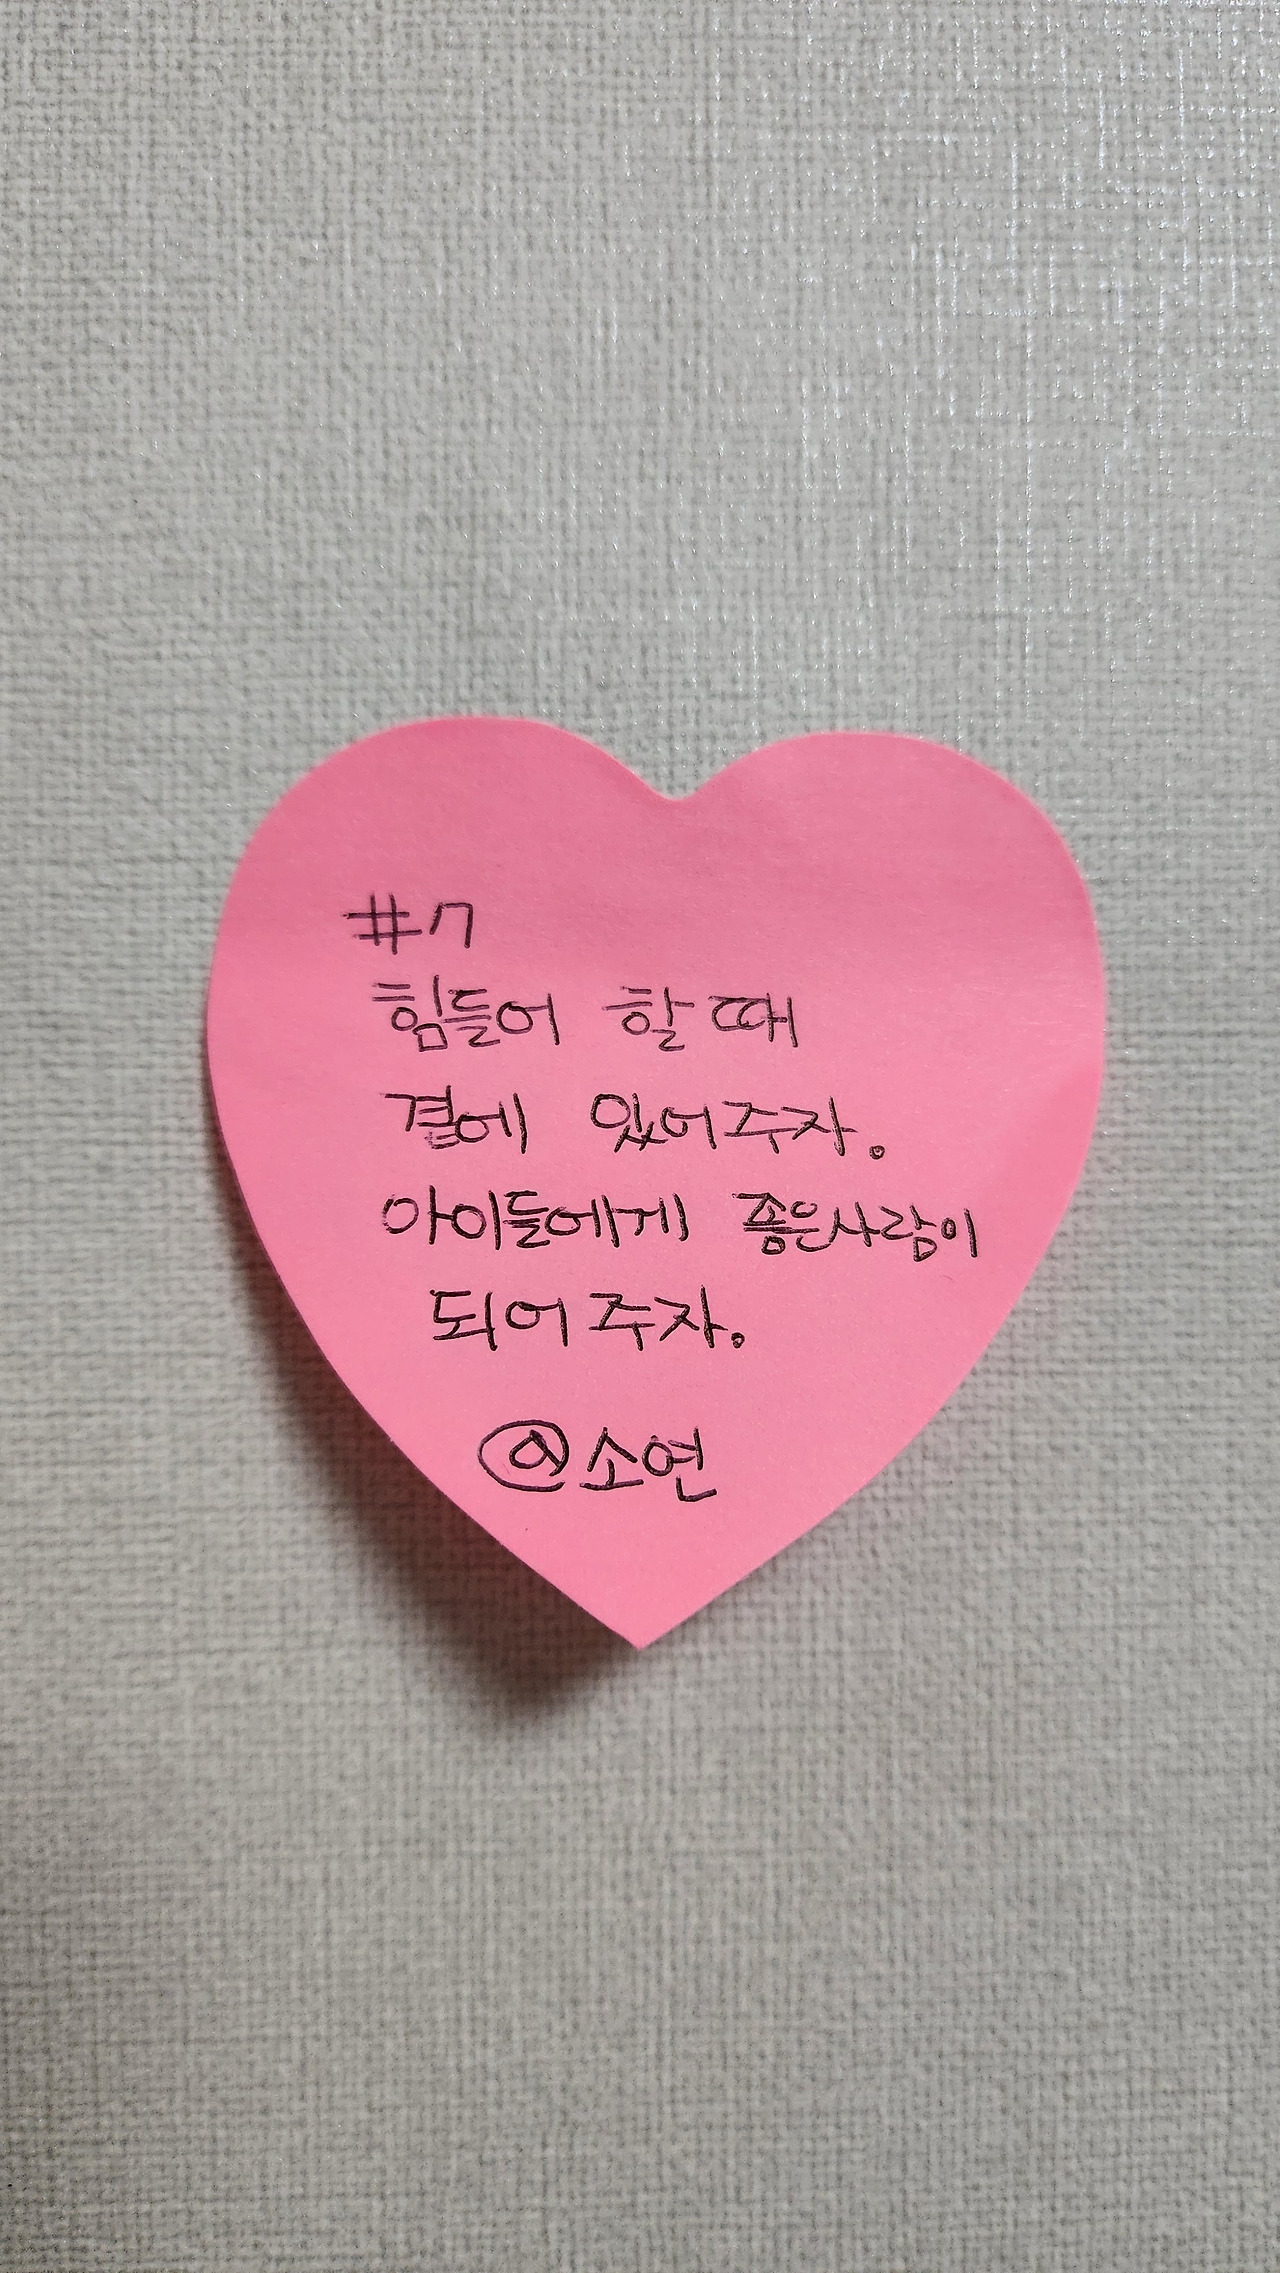 #7
힘들어 할 때
곁에 있어주자.
아이들에게 좋은사람이
되어주자.
@소연